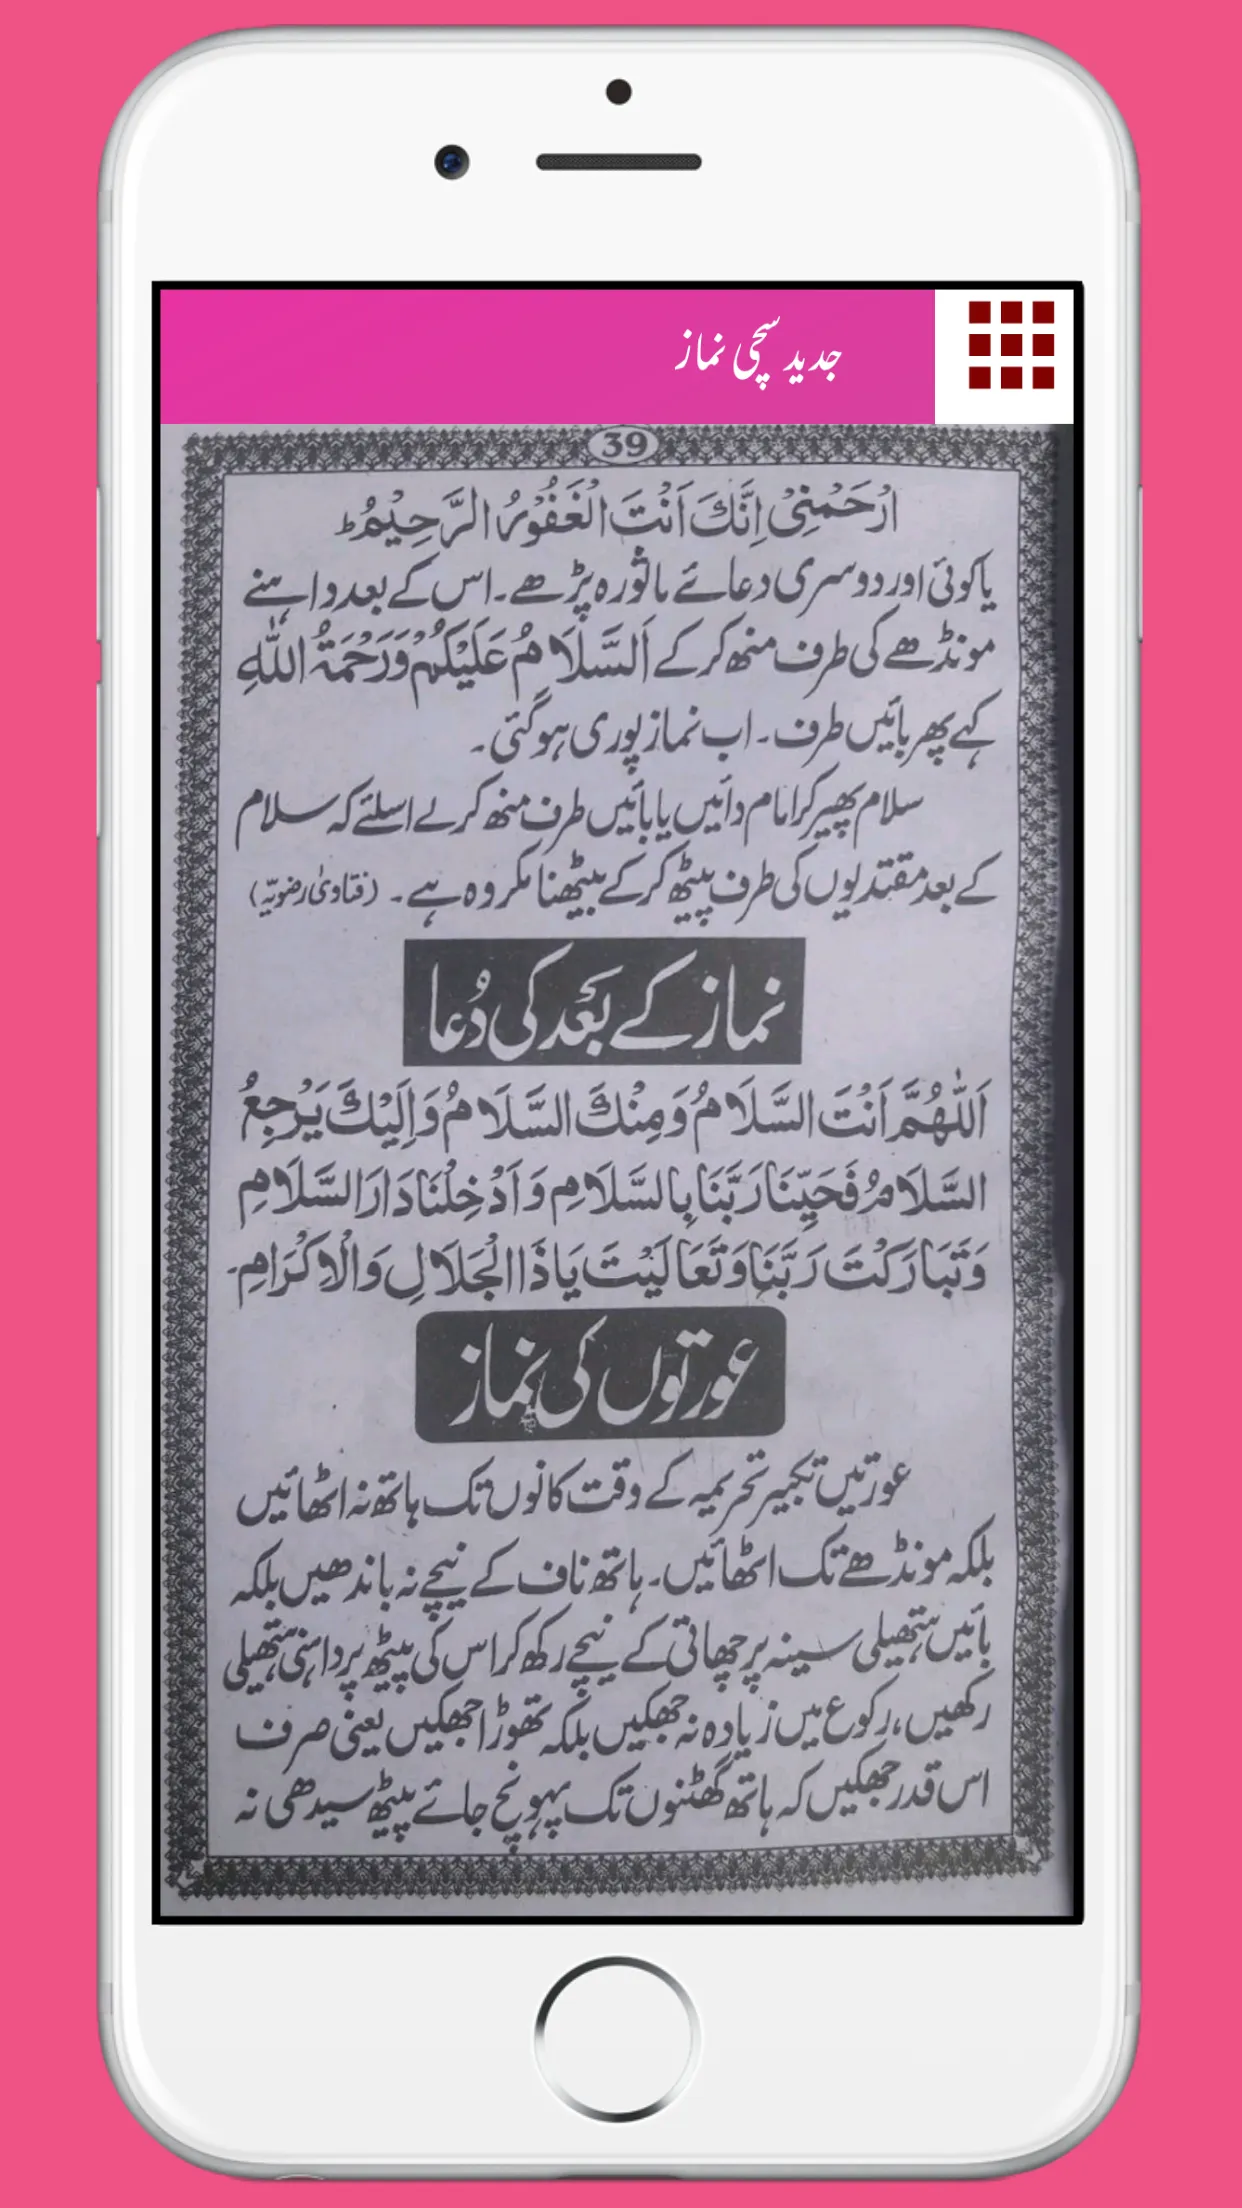 جدید سچی نماز
39
اِرْحَمْنِیْ اِنَّكَ اَنْتَ الْغَفُوْرُ الرَّحِیْمُ ط
یا کوئی اور دوسری دعائے ماثورہ پڑھے۔ اس کے بعد داہنے
مونڈھے کی طرف منھ کر کے اَلسَّلَامُ عَلَیْکُمْ وَرَحْمَۃُ اللّٰہِ
کہے پھر بائیں طرف۔ اب نماز پوری ہو گئی۔
سلام پھیر کر امام دائیں یا بائیں طرف منھ کر لے اسلئے کہ سلام
کے بعد مقتدیوں کی طرف پیٹھ کر کے بیٹھنا مکروہ ہے۔ (فتاویٰ رضویّہ)
نماز کے بعد کی دُعا
اَللّٰھُمَّ اَنْتَ السَّلَامُ وَمِنْكَ السَّلَامُ وَاِلَیْكَ یَرْجِعُ
السَّلَامُ فَحَیِّنَا رَبَّنَا بِالسَّلَامِ وَاَدْخِلْنَا دَارَ السَّلَامِ
وَتَبَارَکْتَ رَبَّنَا وَتَعَالَیْتَ یَاذَا الْجَلَالِ وَالْاِکْرَامِ۔
عورتوں کی نماز
عورتیں تکبیر تحریمہ کے وقت کانوں تک ہاتھ نہ اٹھائیں
بلکہ مونڈھے تک اٹھائیں۔ ہاتھ ناف کے نیچے نہ باندھیں بلکہ
بائیں ہتھیلی سینہ پر چھاتی کے نیچے رکھ کر اس کی پیٹھ پر داہنی ہتھیلی
رکھیں، رکوع میں زیادہ نہ جھکیں بلکہ تھوڑا جھکیں یعنی صرف
اس قدر جھکیں کہ ہاتھ گھٹنوں تک پہونچ جائے پیٹھ سیدھی نہ